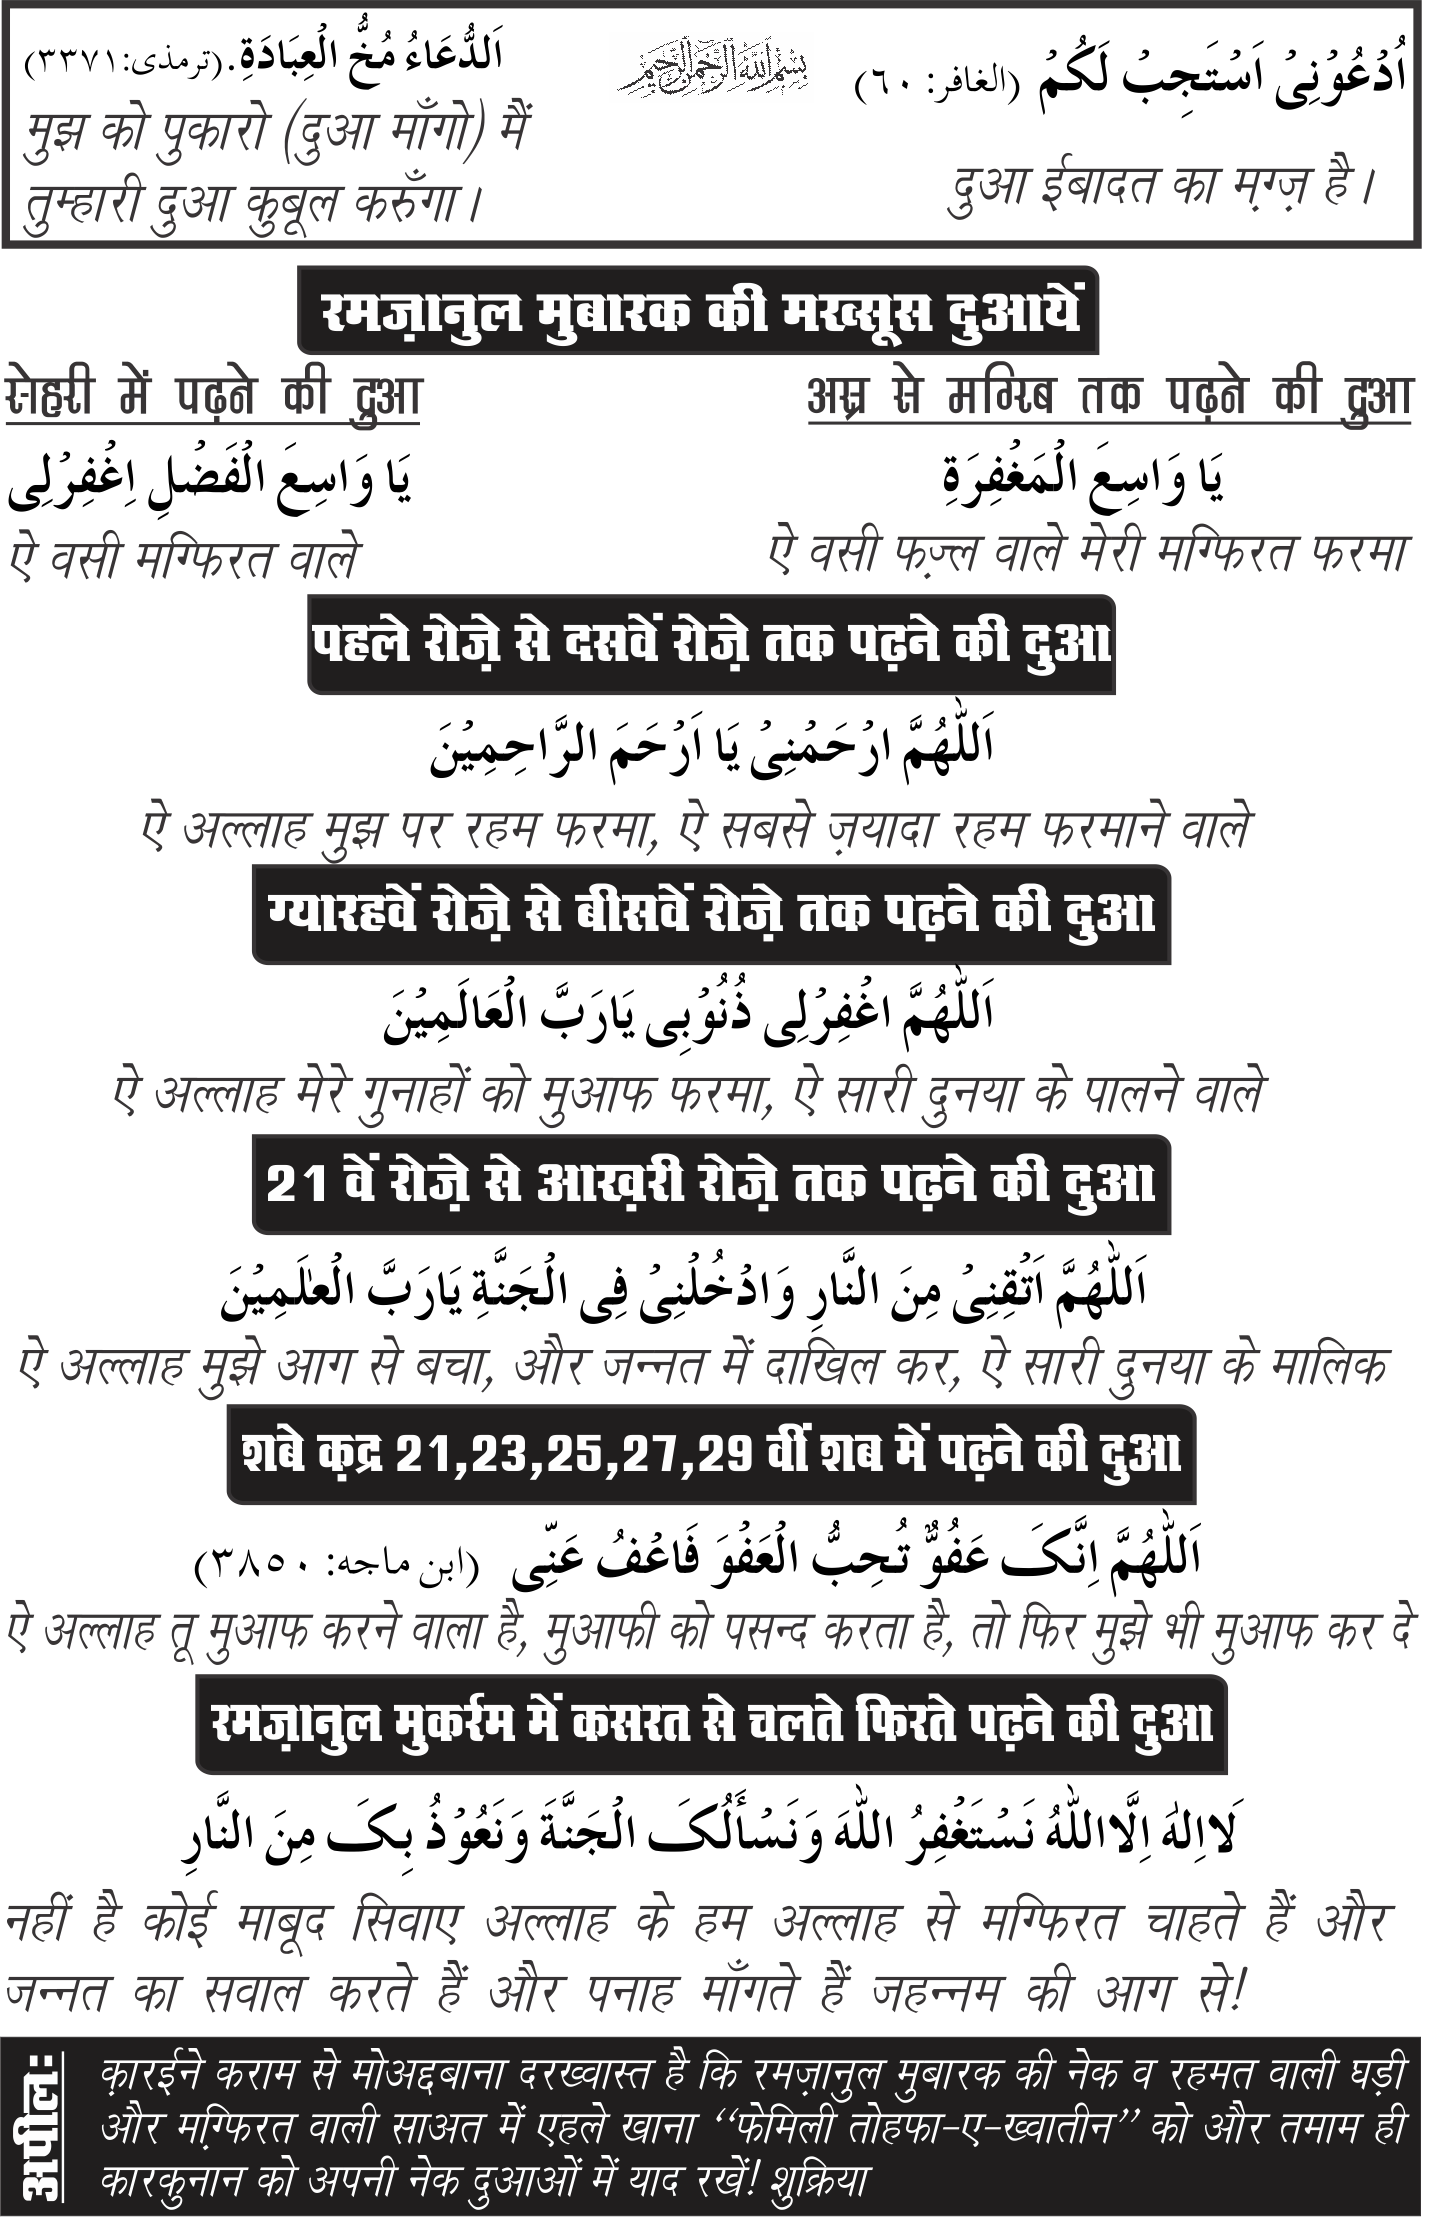 اُدْعُوْنِیْ اَسْتَجِبْ لَکُمْ (الغافر: ٦٠)
بسم الله الرحمن الرحيم
اَلدُّعَاءُ مُخُّ الْعِبَادَةِ. (ترمذی:٣٣٧١)
मुझ को पुकारो (दुआ माँगो) मैं
तुम्हारी दुआ कुबूल करुँगा।
दुआ ईबादत का मग़्ज़ है।
रमज़ानुल मुबारक की मख्सूस दुआयें
सेहरी में पढ़ने की दुआ
یَا وَاسِعَ الْفَضْلِ اِغْفِرْلِی
ऐ वसी मग्फिरत वाले
अस्र से मग्रिब तक पढ़ने की दुआ
یَا وَاسِعَ الْمَغْفِرَةِ
ऐ वसी फज़्ल वाले मेरी मग्फिरत फरमा
पहले रोज़े से दसवें रोज़े तक पढ़ने की दुआ
اَللّٰهُمَّ ارْحَمْنِیْ یَا اَرْحَمَ الرَّاحِمِیْنَ
ऐ अल्लाह मुझ पर रहम फरमा, ऐ सबसे ज़यादा रहम फरमाने वाले
ग्यारहवें रोज़े से बीसवें रोज़े तक पढ़ने की दुआ
اَللّٰهُمَّ اغْفِرْلِی ذُنُوْبِی یَارَبَّ الْعَالَمِیْنَ
ऐ अल्लाह मेरे गुनाहों को मुआफ फरमा, ऐ सारी दुनया के पालने वाले
21 वें रोज़े से आख़री रोज़े तक पढ़ने की दुआ
اَللّٰهُمَّ اَتْقِنِیْ مِنَ النَّارِ وَادْخُلْنِیْ فِی الْجَنَّةِ یَارَبَّ الْعٰلَمِیْنَ
ऐ अल्लाह मुझे आग से बचा, और जन्नत में दाखिल कर, ऐ सारी दुनया के मालिक
शबे क़द्र 21,23,25,27,29 वीं शब में पढ़ने की दुआ
اَللّٰهُمَّ اِنَّکَ عَفُوٌّ تُحِبُّ الْعَفْوَ فَاعْفُ عَنِّی (ابن ماجه: ٣٨٥٠)
ऐ अल्लाह तू मुआफ करने वाला है, मुआफी को पसन्द करता है, तो फिर मुझे भी मुआफ कर दे
रमज़ानुल मुकर्रम में कसरत से चलते फिरते पढ़ने की दुआ
لَااِلٰهَ اِلَّااللّٰهُ نَسْتَغْفِرُ اللّٰهَ وَنَسْأَلُکَ الْجَنَّةَ وَنَعُوْذُ بِکَ مِنَ النَّارِ
नहीं है कोई माबूद सिवाए अल्लाह के हम अल्लाह से मग्फिरत चाहते हैं और
जन्नत का सवाल करते हैं और पनाह माँगते हैं जहन्नम की आग से!
अपील:
क़ारईने कराम से मोअद्दबाना दरख्वास्त है कि रमज़ानुल मुबारक की नेक व रहमत वाली घड़ी
और मग़्फिरत वाली साअत में एहले खाना ‘‘फेमिली तोहफा-ए-ख्वातीन’’ को और तमाम ही
कारकुनान को अपनी नेक दुआओं में याद रखें! शुक्रिया